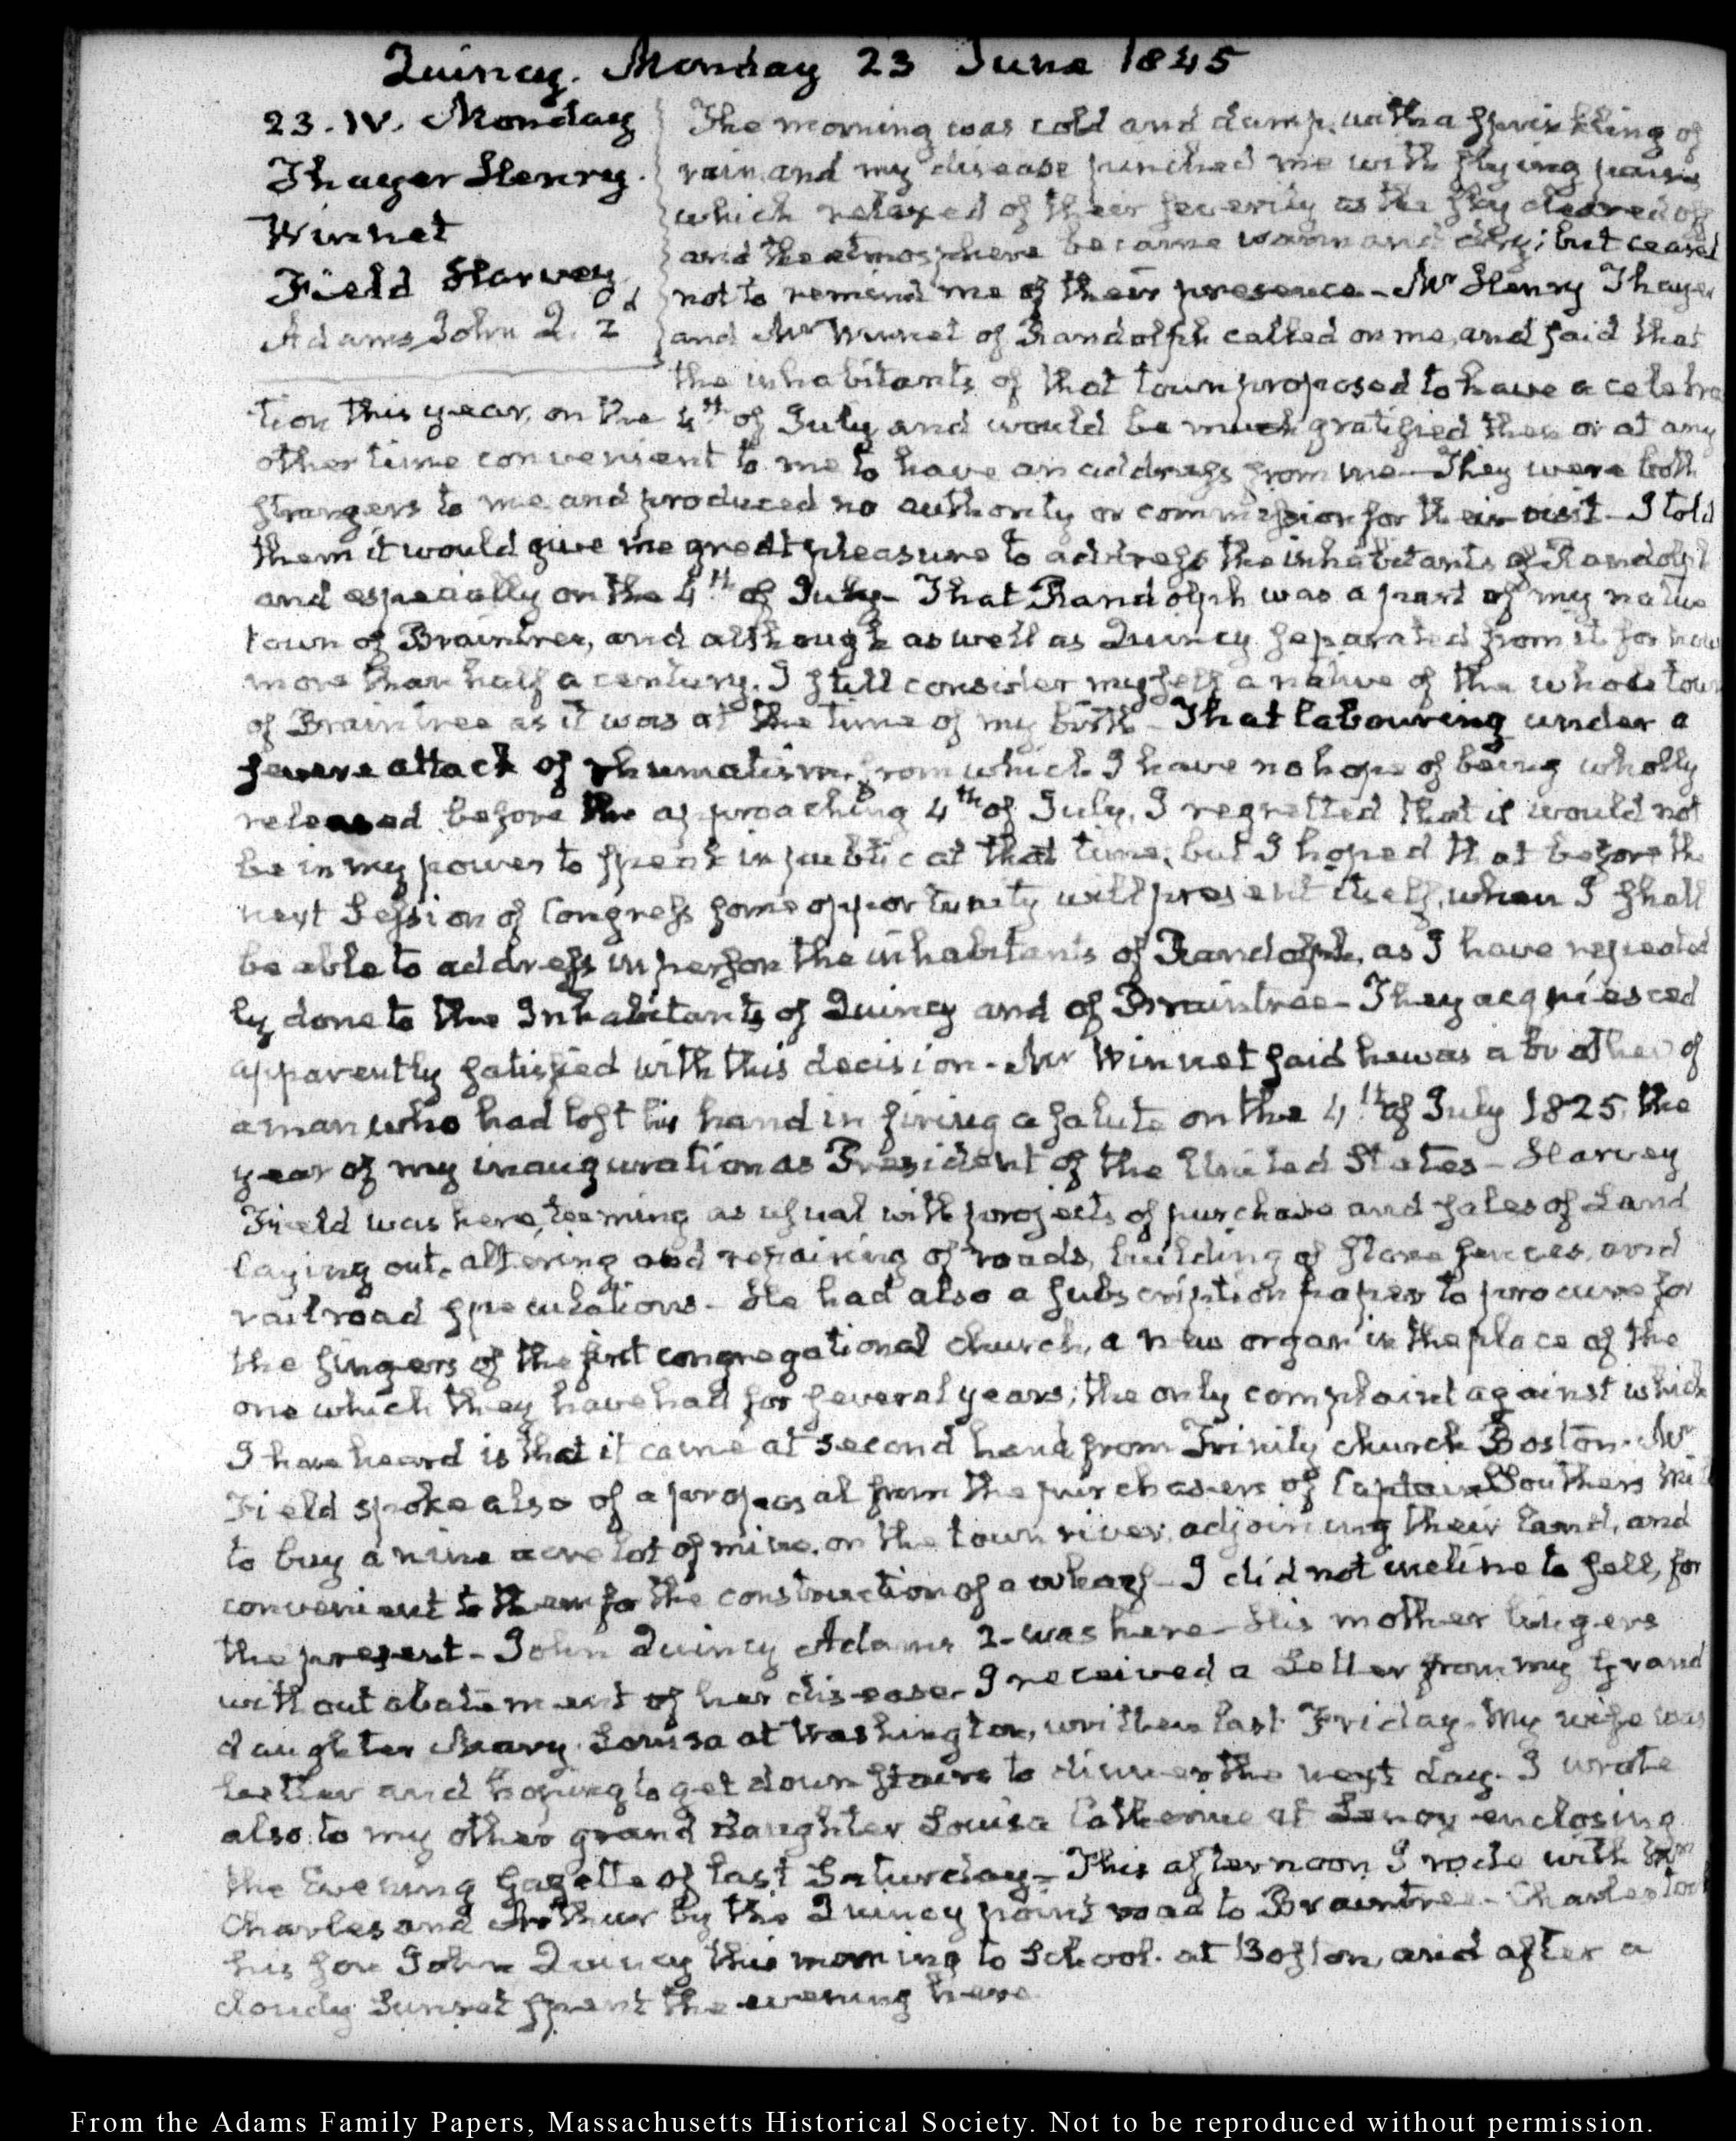 Quincy. Monday 23 June 1845
23. IV. Monday
Thayer Henry.
Winnet
Field Harvey
Adams John Q. 2d
The morning was cold and damp, with a sprinkling of
rain, and my disease pinched me with flying pains
which relaxed of their severity as the sky cleared off
and the atmosphere became warm and dry; but ceased
not to remind me of their presence - Mr Henry Thayer
and Mr Winnet of Randolph called on me, and said that
the inhabitants of that town proposed to have a celebra
tion this year, on the 4th of July and would be much gratified then or at any
other time convenient to me to have an address from me - They were both
strangers to me and produced no authority or commission for their visit - I told
them it would give me great pleasure to address the inhabitants of Randolph
and especially on the 4th of July - That Randolph was a part of my native
town of Braintree, and although as well as Quincy separated from it for now
more than half a century, I still consider myself a native of the whole town
of Braintree as it was at the time of my birth - That labouring under a
severe attack of rhumatism from which I have no hope of being wholly
released before the approaching 4th of July, I regretted that it would not
be in my power to speak in public at that time; but I hoped that before the
next Session of Congress some opportunity will present itself, when I shall
be able to address in person the inhabitants of Randolph, as I have repeated
ly done to the Inhabitants of Quincy and of Braintree - They acquiesced
apparently satisfied with this decision - Mr Winnet said he was a brother of
a man who had lost his hand in firing a salute on the 4th of July 1825 the
year of my inauguration as President of the United States - Harvey
Field was here, teeming as usual with projects of purchase and sales of Land
laying out, altering and repairing of roads, building of stone fences, and
railroad speculations - He had also a subscription paper to procure for
the singers of the first congregational church, a new organ in the place of the
one which they have had for several years; the only complaint against which
I have heard is that it came at second hand from Trinity church Boston - Mr
Field spoke also of a proposal from the purchasers of Captain Souther's
to buy a nine acre lot of mine, on the town river, adjoining their land, and
convenient to them for the construction of a wharf - I did not incline to sell, for
the present - John Quincy Adams 2. was here - His mother lingers
without abatement of her disease - I received a Letter from my Grand
daughter Mary Louisa at Washington, written last Friday - My wife was
better and hoping to get down stairs to dinner the next day. I wrote
also to my other grand Daughter Louisa Catherine at Lenox enclosing
the Evening Gazette of last Saturday - This afternoon I rode with
Charles and Arthur by the Quincy point road to Braintree - Charles took
his son John Quincy this morning to School at Boston, and after a
cloudy Sunset spent the evening here
From the Adams Family Papers, Massachusetts Historical Society. Not to be reproduced without permission.